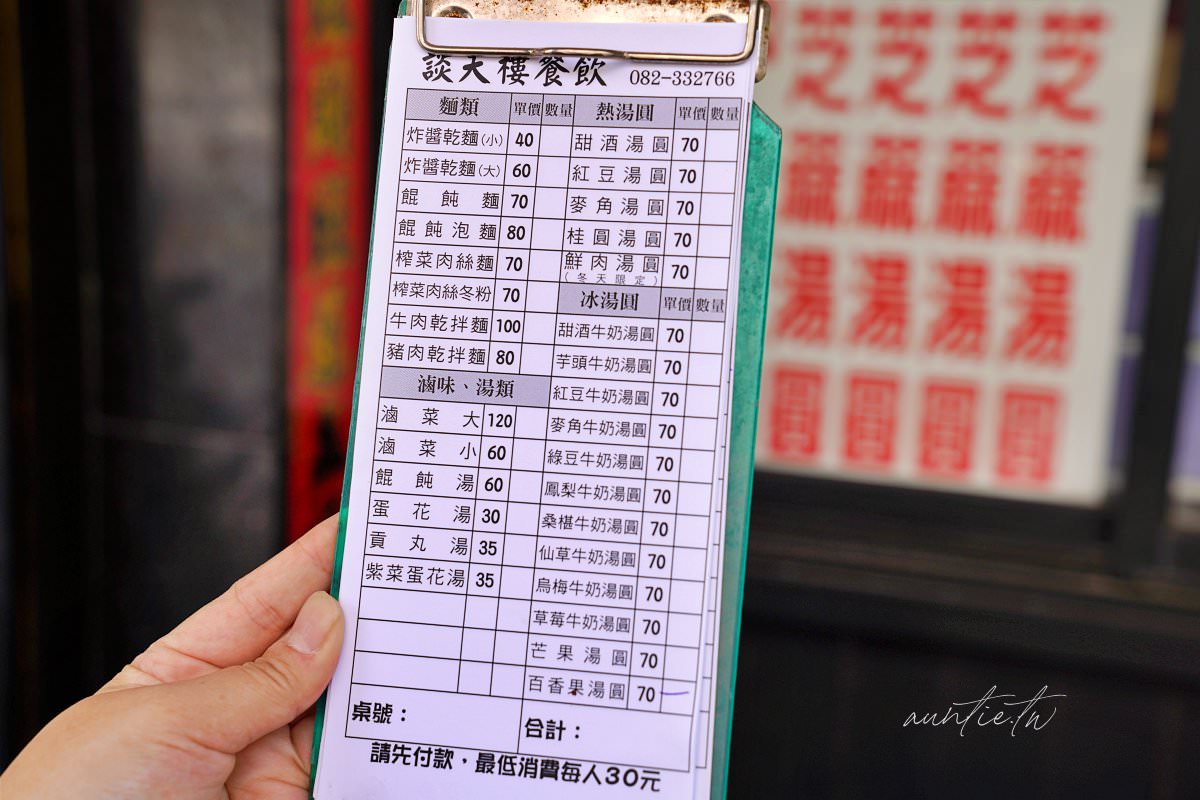 談天樓餐飲 082-332766
麵類 單價 數量
炸醬乾麵(小) 40
炸醬乾麵(大) 60
餛飩麵 70
餛飩泡麵 80
榨菜肉絲麵 70
榨菜肉絲冬粉 70
牛肉乾拌麵 100
豬肉乾拌麵 80
滷味、湯類
滷菜大 120
滷菜小 60
餛飩湯 60
蛋花湯 30
貢丸湯 35
紫菜蛋花湯 35
熱湯圓 單價 數量
甜酒湯圓 70
紅豆湯圓 70
麥角湯圓 70
桂圓湯圓 70
鮮肉湯圓 70
(冬天限定)
冰湯圓 單價 數量
甜酒牛奶湯圓 70
芋頭牛奶湯圓 70
紅豆牛奶湯圓 70
麥角牛奶湯圓 70
綠豆牛奶湯圓 70
鳳梨牛奶湯圓 70
桑椹牛奶湯圓 70
仙草牛奶湯圓 70
烏梅牛奶湯圓 70
草莓牛奶湯圓 70
芒果湯圓 70
百香果湯圓 70
桌號：
合計：
請先付款，最低消費每人30元
芝芝芝芝
麻麻麻麻
湯湯湯湯
圓圓圓圓
auntie.tw